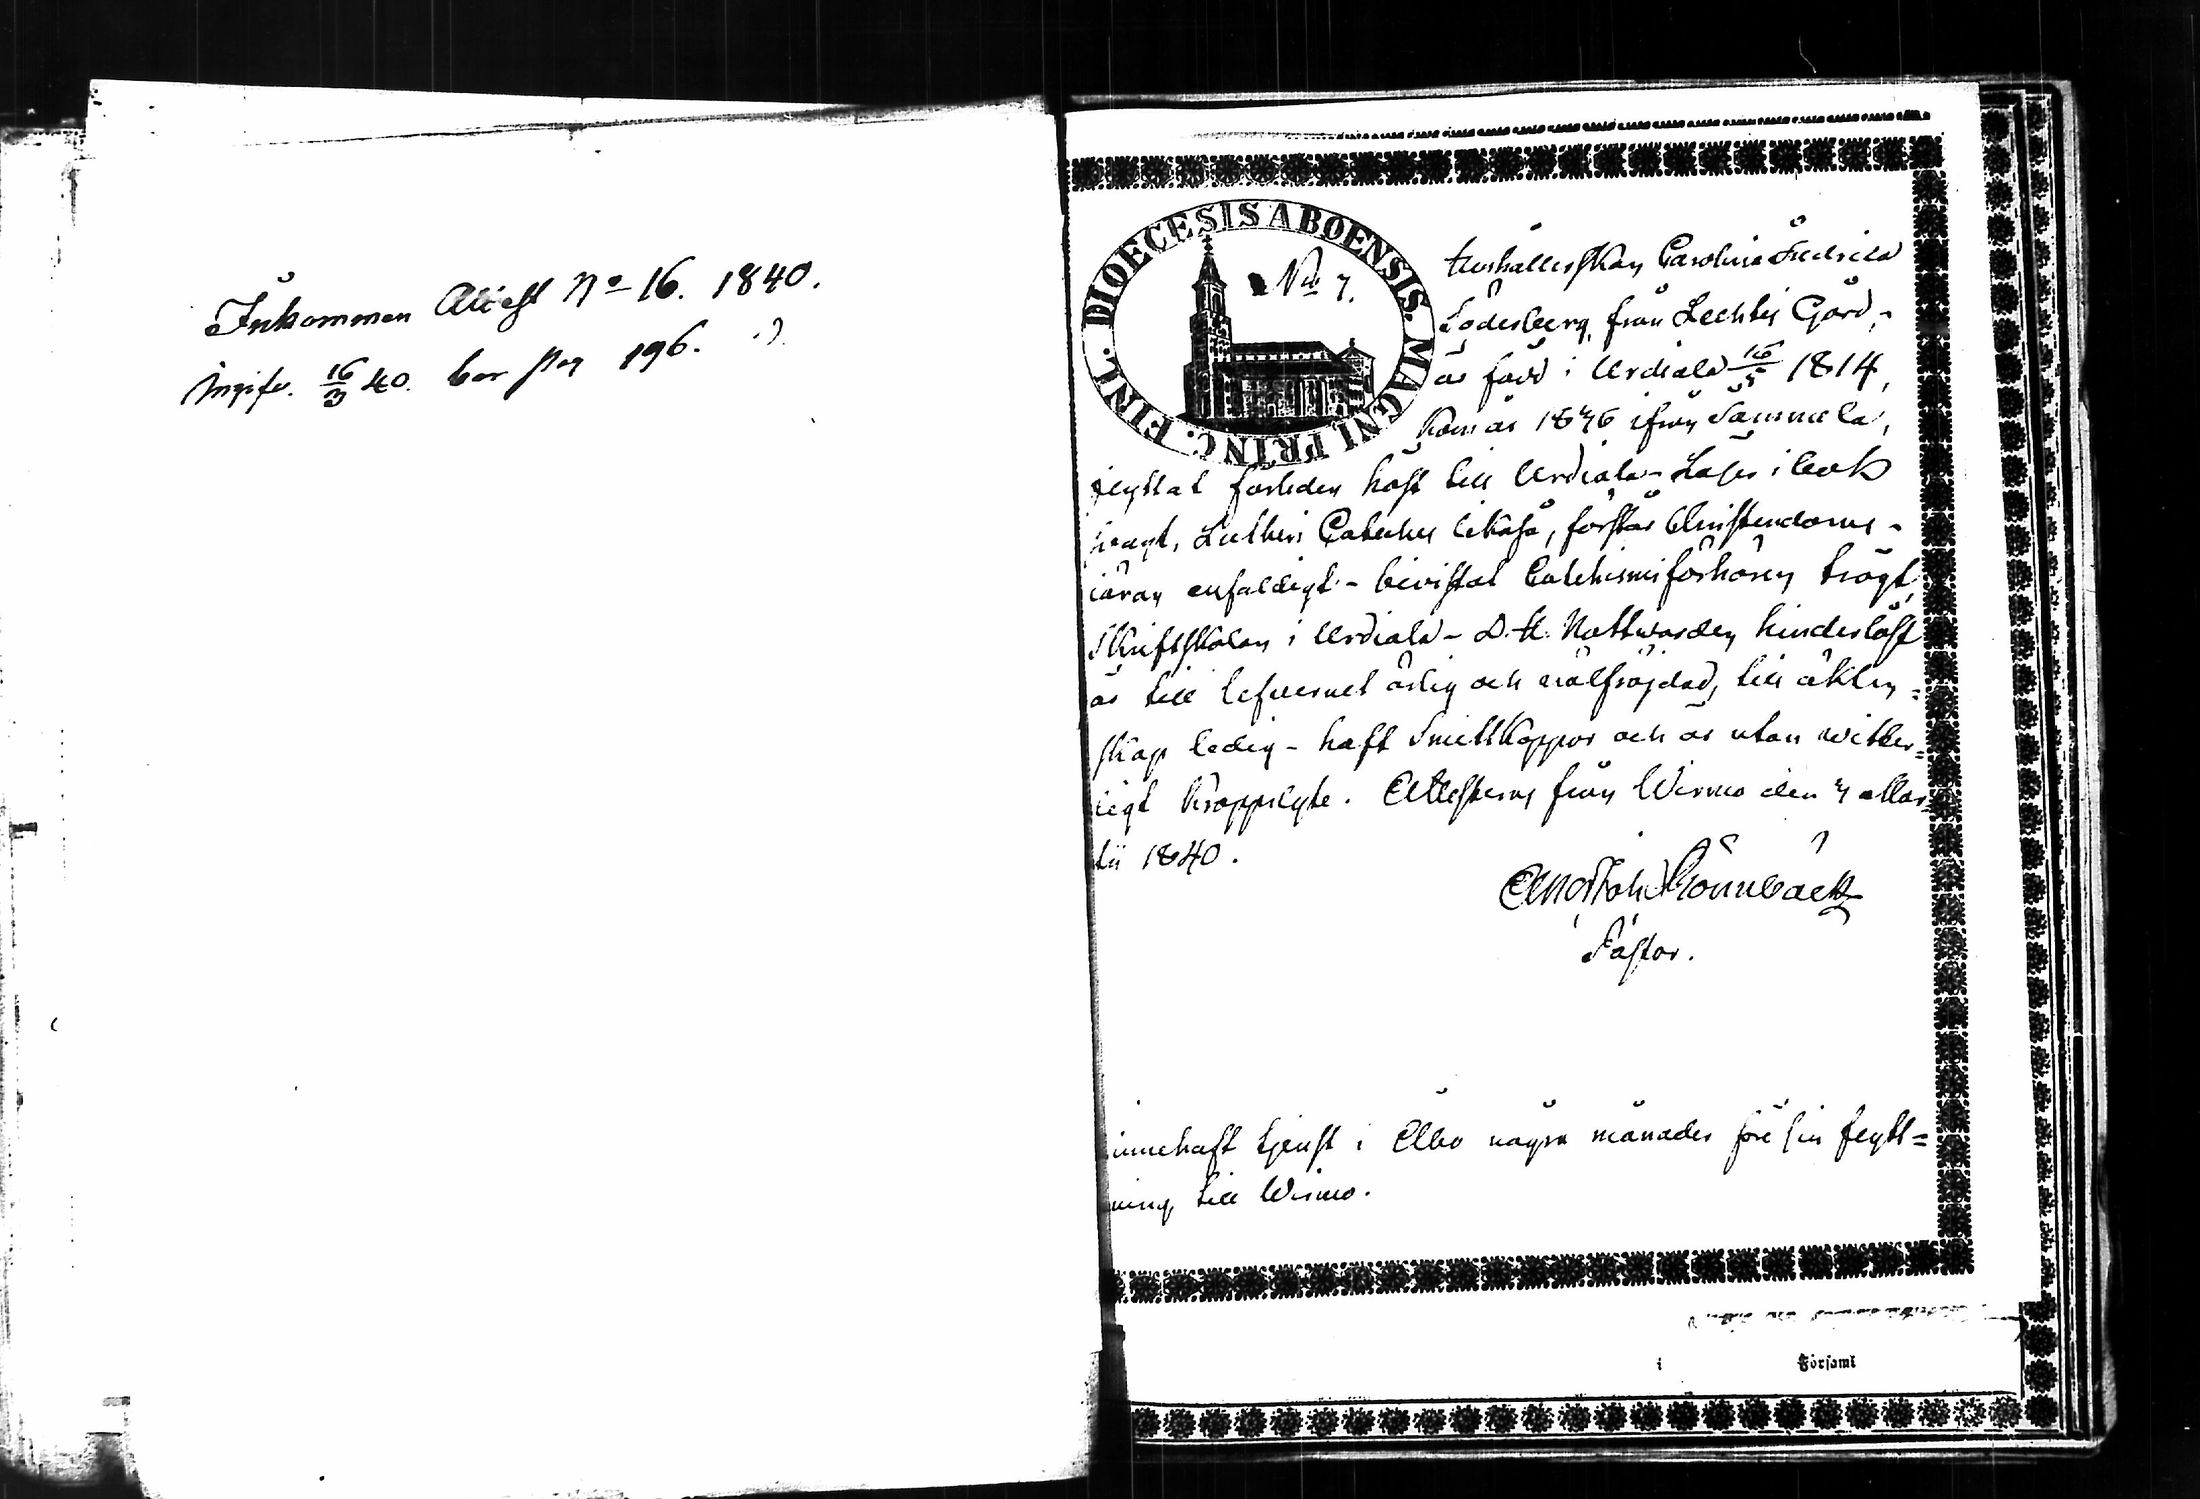 Inkommen Attest No 16. 1840.
Ingifv. 16/3 40. bor pag 196.
DIOECESIS ABOENSIS. MAGNI PRINC. FINL.
No 7.
Hushållerskan Carolina Fredrika
Söderberg, från Lechtis Gård,
är född i Urdiala 16/5 1814,
kom år 1836 ifrån Sammola,
flyttat förleden höst till Urdiala - Läser i bok
svagt, Lutheri Cateches likaså, förstår Christendoms-
läran enfaldigt - bevistat Catechismiförhören trögt,
Skriftskolan i Urdiala - D. H. Nattvarden hinderlöst
är till lefvernet ärlig och välfrejdad, till äkten=
skap ledig - haft Smittkoppor och är utan witter=
ligt kroppslyte. Attesteras från Wirmo den 4 Mar=
tii 1840.
Grönnbäck
Pastor.
innehaft tjenst i Åbo några månader före sin flytt=
ning till Wirmo.
i Församl